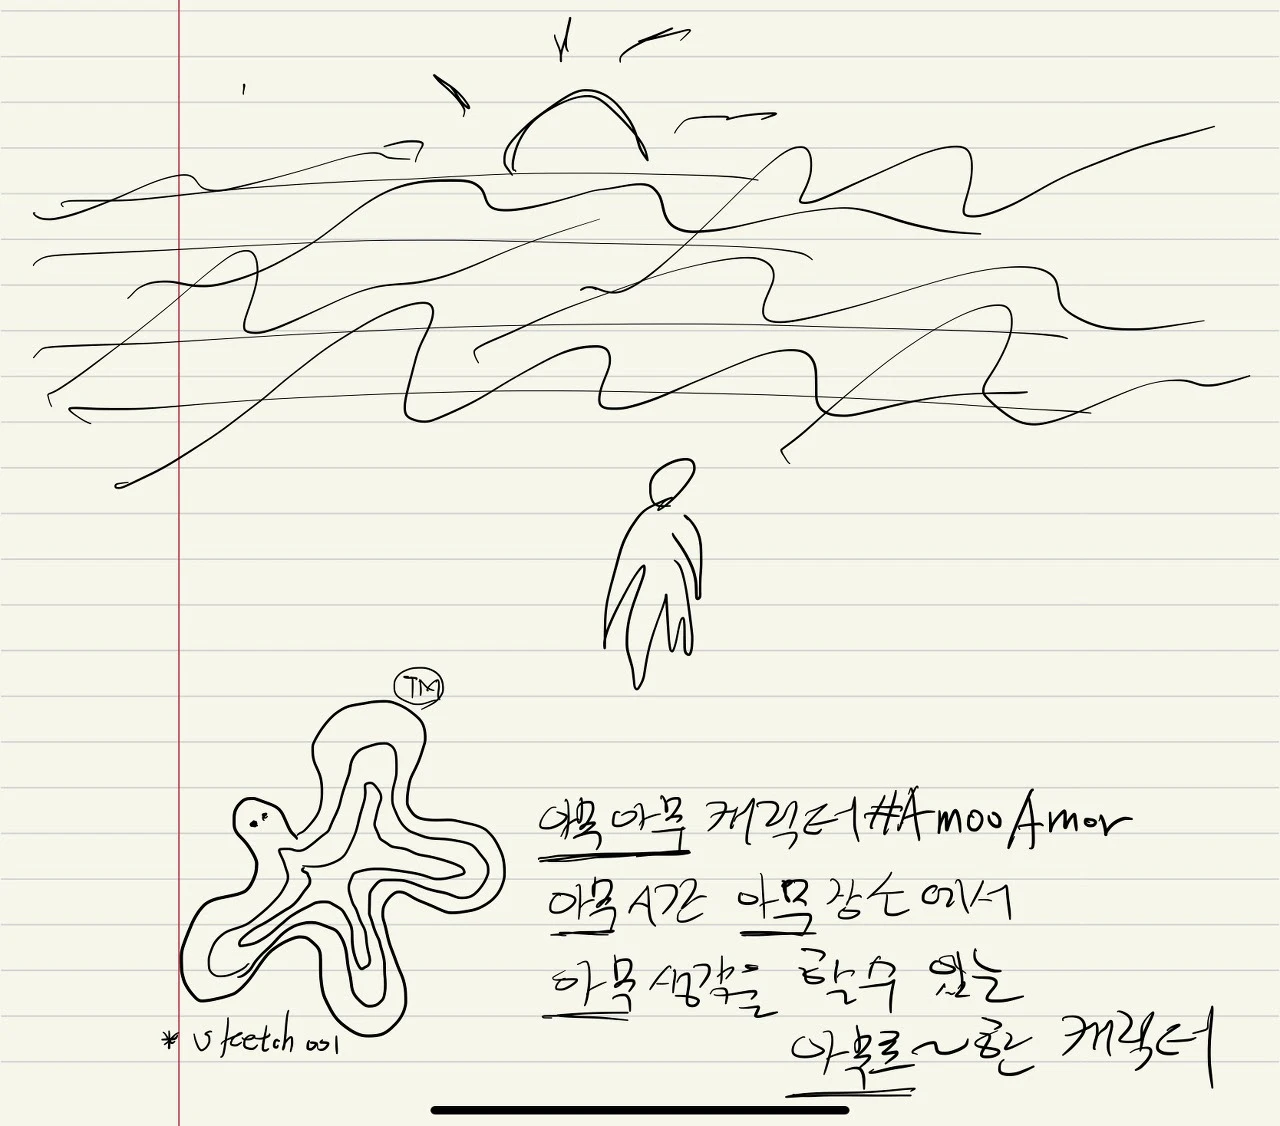 TM
아무 아무 캐릭터 #AmooAmor
아무 시간 아무 장소에서
아무 생각을 할 수 있는
아무로~한 캐릭터
* sketch 001